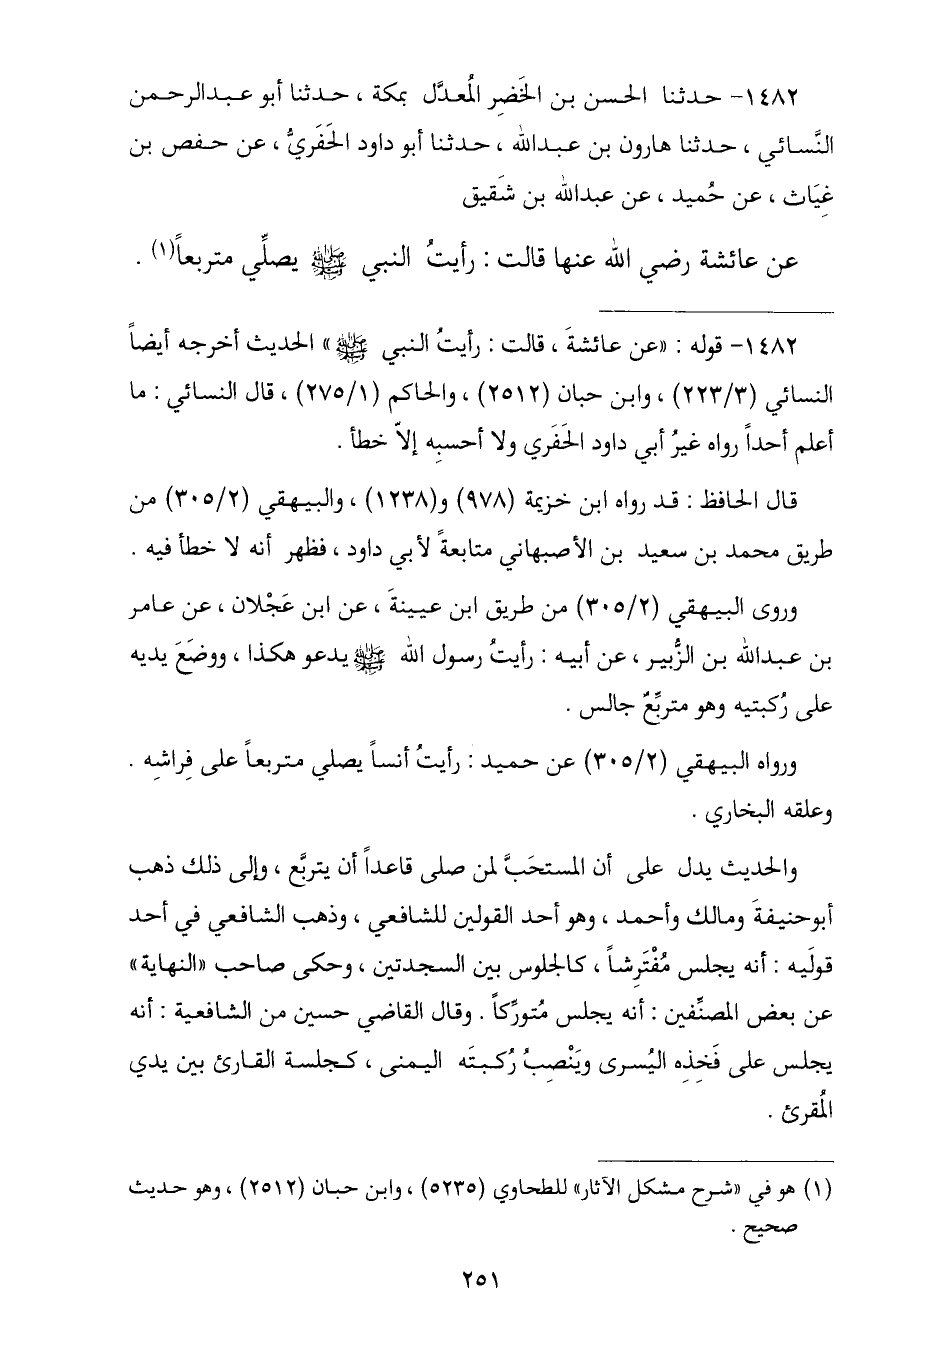 ١٤٨٢- حدثنا الحسن بن الخَضِر المُعدَّل بمكة ، حدثنا أبو عبدالرحمن
النَّسائي ، حدثنا هارون بن عبدالله ، حدثنا أبو داود الحَفَريُّ ، عن حفص بن
غِيَاث ، عن حُميد ، عن عبدالله بن شَقيق
عن عائشة رضي الله عنها قالت : رأيتُ النبي ﷺ يصلِّي متربعاً(١) .
١٤٨٢- قوله : «عن عائشةَ ، قالت : رأيتُ النبي ﷺ» الحديث أخرجه أيضاً
النسائي (٢٢٣/٣) ، وابن حبان (٢٥١٢) ، والحاكم (٢٧٥/١) ، قال النسائي : ما
أعلم أحداً رواه غيرُ أبي داود الحَفَري ولا أحسبِه إلاّ خطأ .
قال الحافظ : قد رواه ابن خزيمة (٩٧٨) و(١٢٣٨) ، والبيهقي (٣٠٥/٢) من
طريق محمد بن سعيد بن الأصبهاني متابعةً لأبي داود ، فظهر أنه لا خطأ فيه .
وروى البيهقي (٣٠٥/٢) من طريق ابن عيينةَ ، عن ابن عَجْلان ، عن عامر
بن عبدالله بن الزُّبير ، عن أبيه : رأيتُ رسول الله ﷺ يدعو هكذا ، ووضَعَ يديه
على رُكبتيه وهو متربِّعٌ جالس .
ورواه البيهقي (٣٠٥/٢) عن حميد : رأيتُ أنساً يصلي متربعاً على فِراشِه .
وعلقه البخاري .
والحديث يدل على أن المستحَبَّ لمن صلى قاعداً أن يتربَّع ، وإلى ذلك ذهب
أبوحنيفةَ ومالك وأحمد ، وهو أحد القولين للشافعي ، وذهب الشافعي في أحد
قولَيه : أنه يجلس مُفْتَرِشاً ، كالجلوس بين السجدتين ، وحكى صاحب «النهاية»
عن بعض المصنِّفين : أنه يجلس مُتورِّكاً . وقال القاضي حسين من الشافعية : أنه
يجلس على فَخِذِه اليُسرى ويَنْصِبُ رُكبتَه اليمنى ، كجلسة القارئ بين يدي
المُقرئ .
(١) هو في «شرح مشكل الآثار» للطحاوي (٥٢٣٥) ، وابن حبان (٢٥١٢) ، وهو حديث
صحيح .
٢٥١